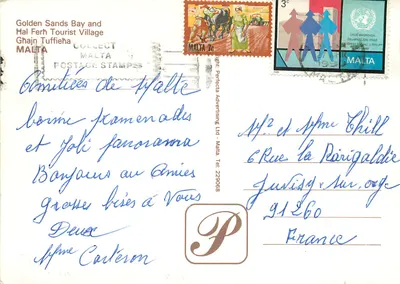 Golden Sands Bay and
Hal Ferh Tourist Village
Ghajn Tuffieha
MALTA
COLLECT
MALTA
POSTAGE STAMPS
MALTA
3c
MALTA
Perfecta Advertising Ltd - Malta. Tel. 229068
Amitiées de Malte
bonne promenades
et Joli panorama
Bonjours au Amies
grosses bises à Vous
Deux
Mme Carteron
P
Mr et Mme Thill
6 Rue la
Juvisy-sur-orge
91260
France